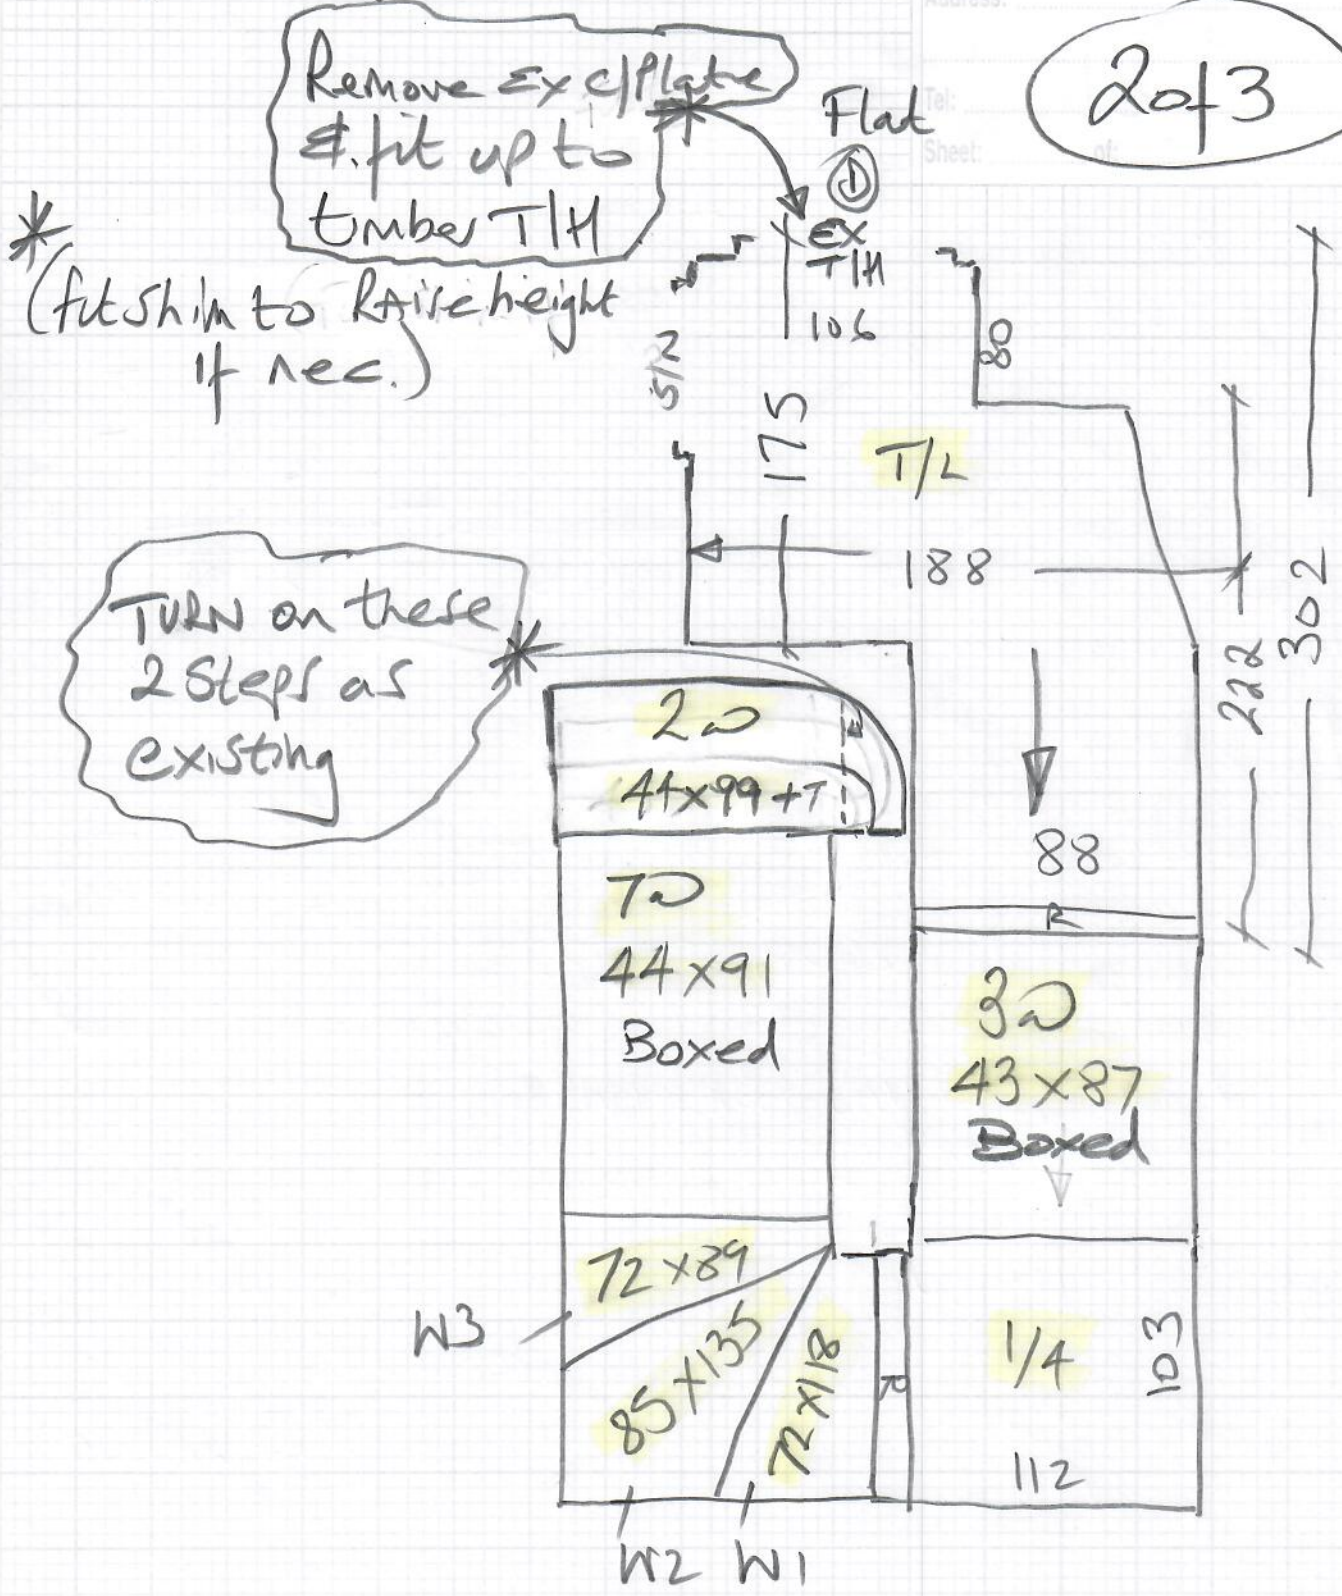 Address:
2 of 3
Tel:
Sheet: of:
Remove Ex c/Plate
&. fit up to
timber T/H
Flat
D
EX
T/H
106
*
(fit shim to RAise height
if nec.)
S/2
80
175
T/L
188
302
222
TURN on these
2 Steps as
existing
*
2
44x99+T
88
R
7
44x91
Boxed
3
43x87
Boxed
72x89
W3
85x135
72x118
R
1/4
103
112
W2 W1